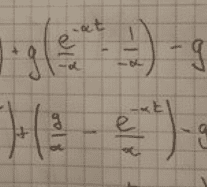 ) + g(e^{-αt}/-α - 1/-α) - g
) + (g/α - e^{-αt}/α) - g